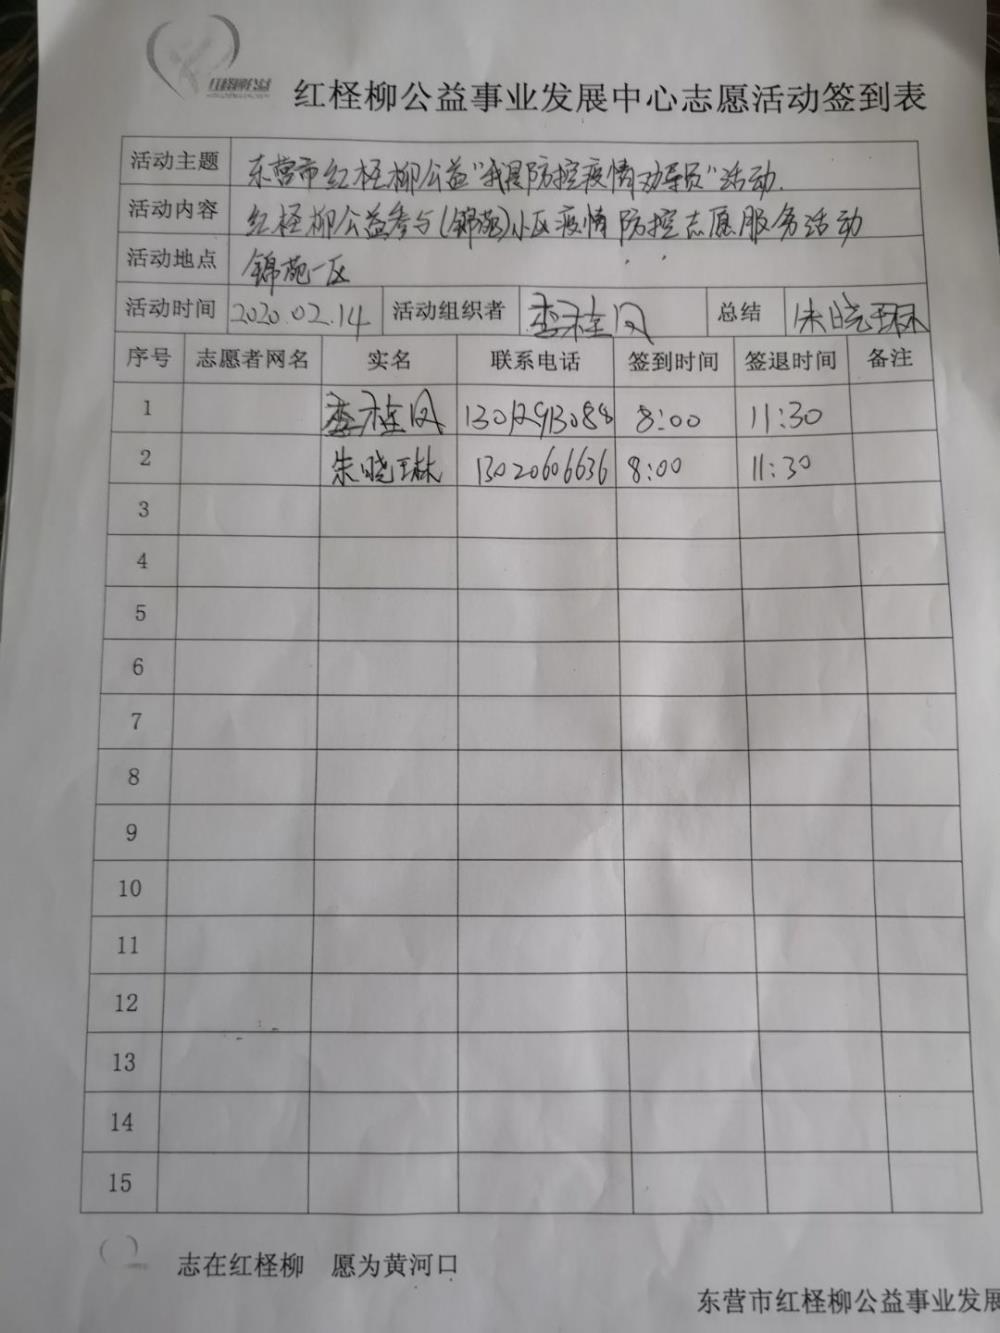 红柽柳公益
红柽柳公益事业发展中心志愿活动签到表
活动主题 东营市红柽柳公益"我是防控疫情劝导员"活动.
活动内容 红柽柳公益参与(锦苑)小区疫情防控志愿服务活动
活动地点 锦苑一区
活动时间 2020.02.14 活动组织者 李桂凤 总结 朱晓琳
序号 志愿者网名 实名 联系电话 签到时间 签退时间 备注
1 李桂凤 8:00 11:30
2 朱晓琳 13020606636 8:00 11:30
3
4
5
6
7
8
9
10
11
12
13
14
15
志在红柽柳 愿为黄河口
东营市红柽柳公益事业发展